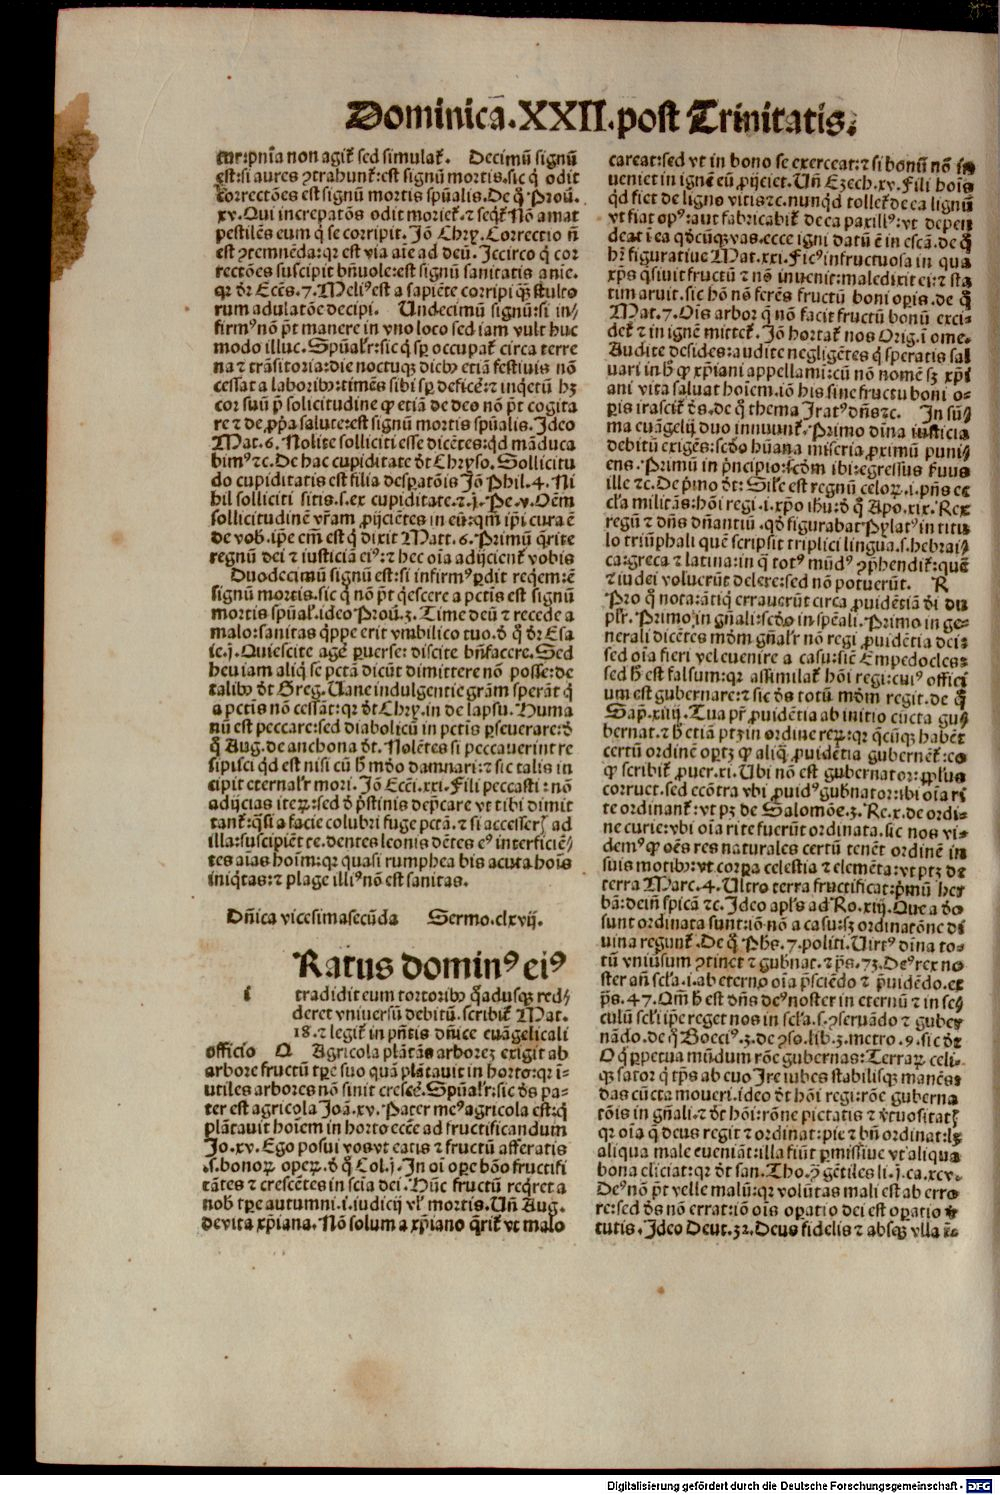 Dominicā.XXII.post Trinitatis.
tur:pn̄ia non agit̄ sed simulat̄. Decimū signū
est:si aures ꝯtrahunt̄:est signū mortis.sic q̇ odit
correctōes est signū mortis spūalis.De q̊ Prou̅.
xv.Qui increpatōs odit moriet̄.⁊ seq̄t̄ Nō amat
pestilēs eum q̇ se corripit.Jō Chry.Correctio n̄
est ꝯtemnēda:qr est via aīe ad deū.Jccirco q̇ cor
rectōes suscipit bn̄uole:est signū sanitatis anīe.
qr dr̄ Eccēs.7.Meliꝰ est a sapiēte corripi q̄ꝫ stulto
rum adulatōe decipi. Undecimū signū:si in/
firmꝰ nō pt̄ manere in vno loco sed iam vult huc
modo illuc.Spūalr̄:sic q̇ sꝑ occupat̄ circa terre
na ⁊ trāsitoria:die noctuqꝫ diebꝰ etiā festiuis nō
cessat a laboribꝰ:timēs sibi sꝑ deficē:⁊ inq̇etū hꝫ
cor suū p̄ solicitudine ꝙ etiā de deo nō pt̄ cogita
re ⁊ de ꝓp̄a salute:est signū mortis spūalis.Jdeo
Mat.6.Nolite solliciti esse dicētes:qd manduca
bimꝰ ⁊c.De hac cupiditate dt̄ Chryso.Sollicitu
do cupiditatis est filia desꝑatōis Jō Phil.4.Ni
hil solliciti sitis.s.ex cupiditate.⁊.j.Pe.v.Oēm
sollicitudinē vr̄am ꝓijciētes in eū:qm̄ ip̄i cura ē
de vob̄.ip̄e em̄ est q̇ dixit Matt.6.Primū q̄rite
regnū dei ⁊ iusticiā eiꝰ:⁊ hec oīa adijcient̄ vobis
Duodecimū signū est:si infirmꝰ ꝑdit req̇em:ē
signū mortis.sic q̇ nō pt̄ q̇escere a pctīs est signū
mortis spūal̄.ideo Prou̅.3.Time deū ⁊ recede a
malo:sanitas q̇ppe erit vmbilico tuo.d̄ q̊ dr̄ Esa
ie.j.Quiescite agē ꝑuerse:discite bn̄facere.Sed
heu iam aliq̇ se pctā dicūt dimittere nō posse:de
talibꝰ dt̄ Greg.Uane indulgentie grām sperāt q̇
a pctīs nō cessāt:qr dt̄ Chry.in de lapsu.Huma
nū est peccare:sed diabolicū in pctīs ꝑseuerare:d̄
q̊ Aug.de anchona dt̄.Nolētes si peccauerint re
sipisci qd est nisi cū h̄ mōo damnari:⁊ sic talis in
cipit eternalr̄ mori.Jō Ecci.xxi.Fili peccasti:nō
adijcias iteꝝ:sed d̄ p̄stinis dep̄care vt tibi dimit
tant̄:q̄si a facie colubri fuge pctā.⁊ si accesserꝭ ad
illa:suscipiēt te.dentes leonis dētes eꝰ interficiē/
tes aīas hoīm:qr quasi rumphea bis acuta hoīs
iniq̇tas:⁊ plage illiꝰ nō est sanitas.
Dn̄ica vicesimasecūda Sermo.clxvij.
Ratus dominꝰ eiꝰ
i tradidit eum tortoribꝰ q̄adusqꝫ red/
deret vniuersū debitū.scribit̄ Mat.
18.⁊ legit̄ in pn̄tis dn̄ice euāgelicali
officio Q Agricola plātās arborez exigit ab
arbore fructū tꝑe suo quā plātauit in horto:qr ī=
utiles arbores nō sinit cresce̅.Spūalr̄:sic dȩs pa-
ter est agricola Joā.xv.Pater meꝰ agricola est:q̇
plātauit hoīem in horto eccē ad fructificandum
Jo.xv.Ego posui vos vt eatis ⁊ fructū afferatis
.s.bonoꝝ oꝑeꝝ.d̄ q̊ Col.j.In oī oꝑe bōo fructifi
cātes ⁊ crescētes in scīa dei.Hūc fructū req̇ret a
nob̄ tꝑe autumni.i.iudicij vl̄ mortis.Un̄ Aug.
de vita xp̄iana.Nō solum a xp̄iano q̄rit̄ vt malo
careat:sed vt in bono se exerceat:⁊ si bonū nō in
ueniet in ignē eū ꝓijciet.Un̄ Ezech.xv.Fili hoīs
qd fiet de ligno vitis ⁊c.nunq̇d tollet̄ de ea lignū
vt fiat opꝰ:aut fabricabit̄ de ea paxillꝰ:vt depen
deat ī ea qōcūqꝫ vas.ecce igni datū ē in escā.de q̊
hr̄ figuratiue Mat.xxi.Ficꝰ infructuosa in qua
xp̄s q̄siuit fructū ⁊ nō inuenit:maledixit ei:⁊ sta
tim aruit.sic hō nō ferēs fructū boni oꝑis.de q̊
Mat.7.Oīs arbor q̄ nō facit fructū bonū exci-
det̄ ⁊ in ignē mittet̄.Jō hortat̄ nos Orig.ī ome.
Audite desides:audite negligētes q̇ speratis sal
uari in h̄ ꝙ xp̄iani appellami:cū nō nomē sꝫ xp̄i
ani vita saluat hoīem.iō his sine fructu boni o-
ꝑis irascit̄ dȩs.de q̊ thema Iratꝰ dn̄s ⁊c. In sūm/
ma euāgelij duo innuunt̄.Primo diuīa iusticia
debitū exigēs:scdo hūana miseria ꝓximū puni/
ens.Primū in p̄ncipio:scdm ibi:egressus seruus
ille ⁊c.De p̄mo dt̄:Sile est regnū celoꝝ.i.pn̄s ec
clīa militās:hōi regi.i.xp̄o ihu:d̄ q̊ Apo.xix.Rex
regū ⁊ dn̄s dn̄antiū.qd figurabat Pylatꝰ in titu
lo triūphali quē scripsit triplici lingua.s.hebrai/
ca:greca ⁊ latina:in q̄ totꝰ mūdꝰ ꝯp̄hendit̄:quē
⁊ iudei voluerūt delere:sed non potuerūt. R
Pro q̊ nota:ātiq̇ errauerūt circa ꝓuidētiā di du
plr̄.Primo in gn̄ali:scdo in spēali.Primo in ge=
nerali dicētes mdm gn̄alr̄ nō regi ꝓuidētia dei:
sed oīa fieri vel euenire a casu:sic̄ Empedocles:
sed h̄ est falsum:qr assimilat̄ hōi regi:cuiꝰ offici
um est gubernare:⁊ sic dȩs totū mdm regit.de q̊
Sap̄.xiiij.Tua pr̄ ꝓuidētia ab initio cūcta gu/
bernat.⁊ h̄ etiā ptꝫ in ordine reꝝ:qr q̄cūqꝫ habēt
certū ordinē oꝑtꝫ ꝙ aliq̄ ꝓuidētia gubernēt̄:eo
ꝙ scribit̄ ꝓuer.xi.Ubi nō est gubernator:ꝓplus
corruet.sed ecōtra vbi ꝓuidꝰ gub̄nator:ibi oīa ri
te ordinant̄:vt pꝫ de Salomōe.3.Re.x.de ordi-
ne curie:vbi oīa rite fuerūt ordinata.sic nos vi-
demꝰ ꝙ oēs res naturales certū tenēt ordinē in
suis motibꝰ:vt corꝑa celestia ⁊ elemēta:vt ptꝫ de
terra Marc.4.Ultro terra fructificat:p̄mū her
bā:dein̄ spicā ⁊c.Jdeo apl̄s ad Ro.xiij.Que a deo
sunt ordinata sunt:iō nō a casu:sꝫ ordinatōne di
uina regunt̄.De q̊ Phs.7.politi.Uirtꝰ diuīa to-
tū vniūsum ꝯtinet ⁊ gub̄nat.⁊ ps̄.73.Deꝰ rex no
ster an̄ scl̄a.i.ab eterno oīa p̄sciēdo ⁊ p̄uidēdo.ex
ps̄.47.Qm̄ h̄ est dn̄s deꝰ noster in eternū ⁊ in se/
culū scl̄i ip̄e reget nos in scl̄a.s.ꝯseruādo ⁊ guber
nādo.de q̊ Boeciꝰ.3.de ꝯso.lib.3.metro.9.sic dt̄
O q̇ ꝑpetua mūdum rōe gubernas:Terraꝝ celi-
qꝫ sator q̇ tp̄s ab euo Ire iubes stabilisqꝫ manēs
das cūcta moueri.ideo dt̄ hōi regi:rōe guberna
tōis in gn̄ali.⁊ dt̄ hōi:rōne pietatis ⁊ v̄tuositatꝭ
qr oīa q̄ deus regit ⁊ ordinat:pie ⁊ bn̄ ordinat:lꝫ
aliqua male eueniāt:illa fiūt ꝑmissiue vt aliqua
bona eliciat:qr dt̄ san.Tho.ꝯ gētiles li.j.ca.xcv.
Deꝰ nō pt̄ velle malū:qr volūtas mali est ab erro
re:sed dȩs nō errat:iō oīs oꝑatio dei est oꝑatio v̄
tutis.Jdeo Deut.32.Deus fidelis ⁊ absqꝫ vlla ī-
Digitalisierung gefördert durch die Deutsche Forschungsgemeinschaft - DFG